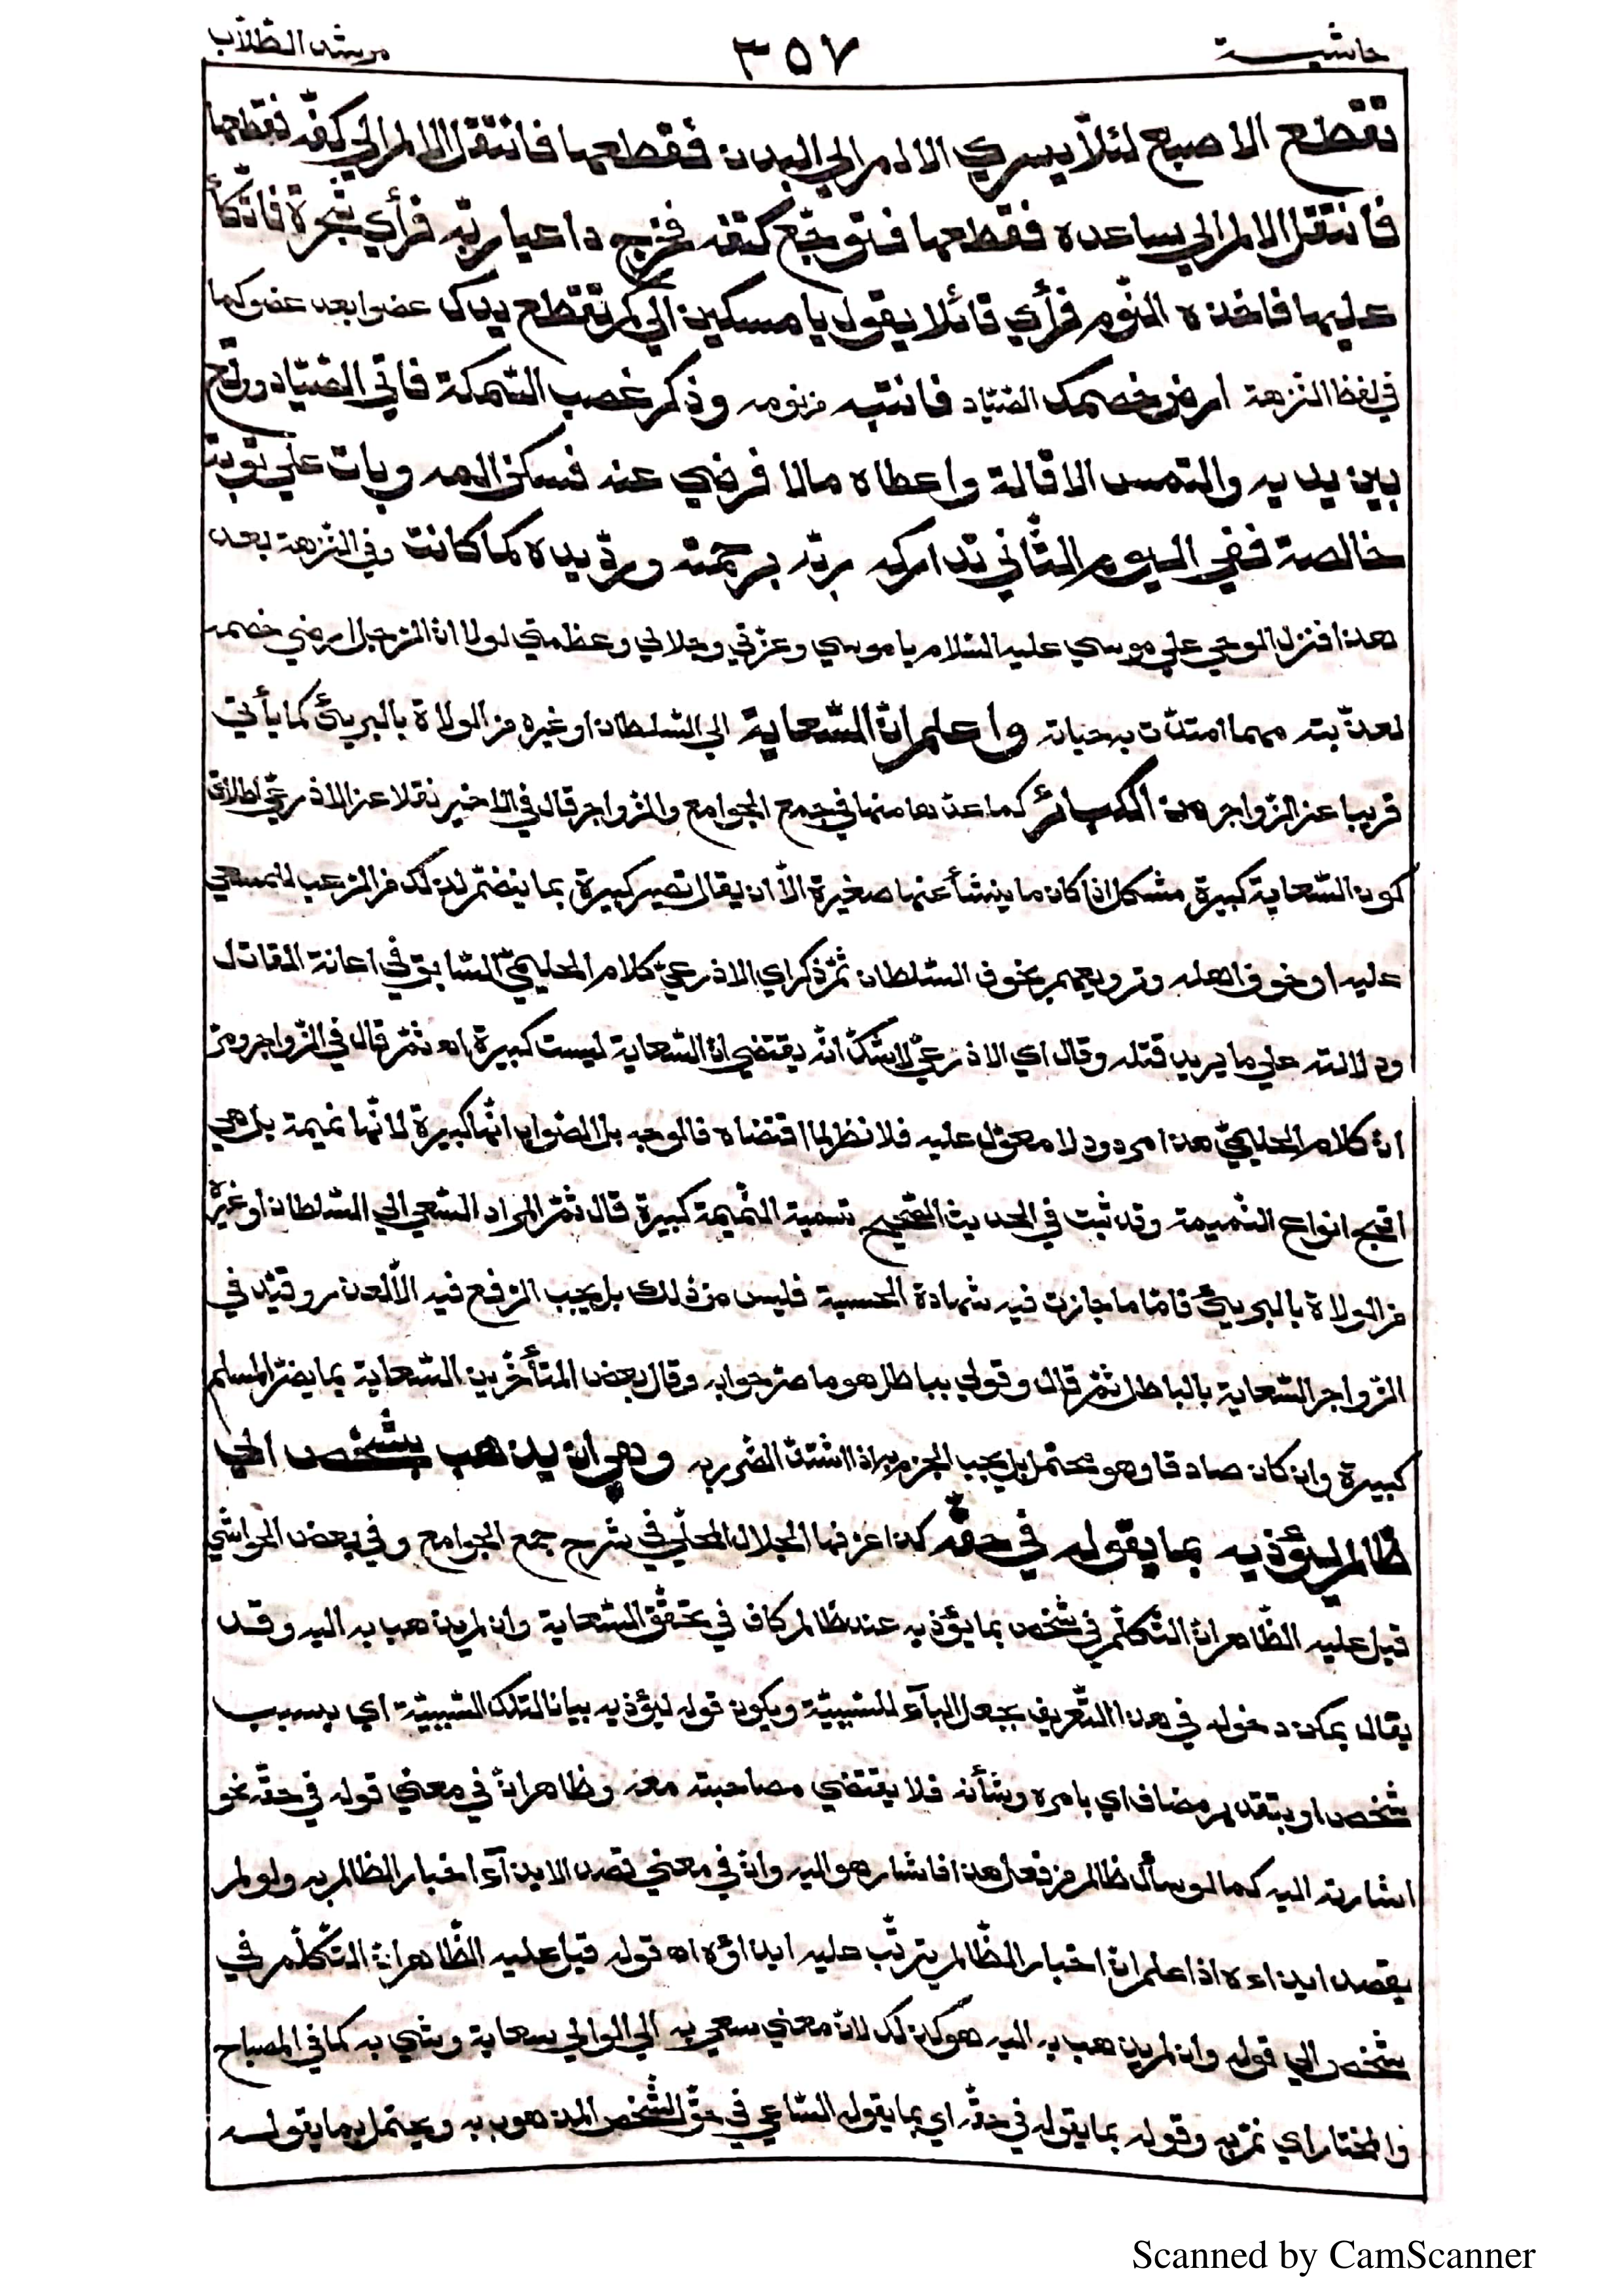 حاشيـــة ٣٥٧ مرشد الطّلاب
تقطع الاصبع لئلّا يسري الالم الي البدن فقطعها فانتقل الالم الي كفّه فقطعها
فانتقل الالم الي ساعده فقطعها فتوجّع كتفه فخرج داعيا ربّه فرأي شجرة فاتّكأ
عليها فاخذه النّوم فرأي قائلا يقول يا مسكين الي كم تقطع يدك عضوا بعد عضو كما
في لفظ النّزهة ارض خصمك الصّيّاد فانتبه من نومه وذكر غصب السّمكة فاتي الصّيّاد ووقع
بين يديه والتمس الاقالة واعطاه مالا فرضي عنه فسكن المه وبات علي توبة
خالصة ففي اليوم الثّاني تداركه ربّه برحمته وردّ يده كما كانت وفي النّزهة بعد
هذا فنزل الوحي علي موسي عليه السّلام يا موسي وعزّتي وجلالي وعظمتي لولا انّ الرّجل ارضي خصمه
لعذّبته مهما امتدّت به حياته واعلم انّ السّعاية الي السّلطان او غيره من الولاة بالبريئ كما يأتي
قريبا عن الزّواجر من الكبائر كما عدّها منها في جمع الجوامع والزّواجر قال في الاخير نقلا عن الاذرعيّ اطلاق
كون السّعاية كبيرة مشكل اذا كان ما ينشأ عنها صغيرة الّا ان يقال تصير كبيرة بما ينضمّ لذلك من الرّعب للمسعي
عليه او خوف اهله وترويعهم بخوف السّلطان ثمّ ذكر اي الاذرعيّ كلام الحليميّ السّابق في اعانة القاتل
ودلالته علي ما يريد قتله وقال اي الاذرعيّ لا شكّ انّه يقتضي انّ السّعاية ليست كبيرة اه ثمّ قال في الزّواجر ومرّ
انّ كلام الحليميّ هذا مردود لا معوّل عليه فلا نظر لما اقتضاه فالوجه بل الصّواب انّها كبيرة لانّها نميمة بل هي
اقبح انواع النّميمة وقد ثبت في الحديث الصّحيح تسمية النّميمة كبيرة قال ثمّ المراد السّعي الي السّلطان او غيره
من الولاة بالبريئ فامّا ما جازت فيه شهادة الحسبة فليس من ذلك بل يجب الرّفع فيه الّا لعذر وقيّد في
الزّواجر السّعاية بالباطل ثمّ قال وقولي بباطل هو ما صرّحوا به وقال بعض المتأخّرين السّعاية بما يضرّ المسلم
كبيرة وان كان صادقا وهو محتمل بل يجب الجزم به اذا اشتدّ الضّرر به وهي ان يذهب بشخص الي
ظالم ليؤذيه بما يقوله في حقّه كذا عرّفها الجلال المحلّي في شرح جمع الجوامع وفي بعض الحواشي
قيل عليه الظّاهر انّ التّكلّم في شخص بما يؤذيه عند ظالم كاف في تحقّق السّعاية وان لم يذهب به اليه وقد
يقال يمكن دخوله في هذا التّعريف بجعل البآء للسّببيّة ويكون قوله ليؤذيه بيانا لتلك السّببيّة اي بسبب
شخص او بتقدير مضاف اي بامره وشأنه فلا يقتضي مصاحبته معه وظاهر انّ في معني قوله في حقّه نحو
اشارته اليه كما لو سأل ظالم من فعل هذا فاشار هو اليه وانّ في معني قصد الايذآء اخبار الظالم به ولو لم
يقصد ايذاءه اذا علم انّ اخبار الظّالم يترتّب عليه ايذاؤه اه قوله قيل عليه الظّاهر انّ التّكلّم في
شخص الي قوله وان لم يذهب به اليه هو كذلك لانّ معني سعي به الي الوالي سعاية وشي به كما في المصباح
والمختار اي نمّ به وقوله بما يقوله في حقّه اي بما يقوله السّاعي في حقّ الشّخص المذهوب به ويحتمل بما يقولـه
Scanned by CamScanner